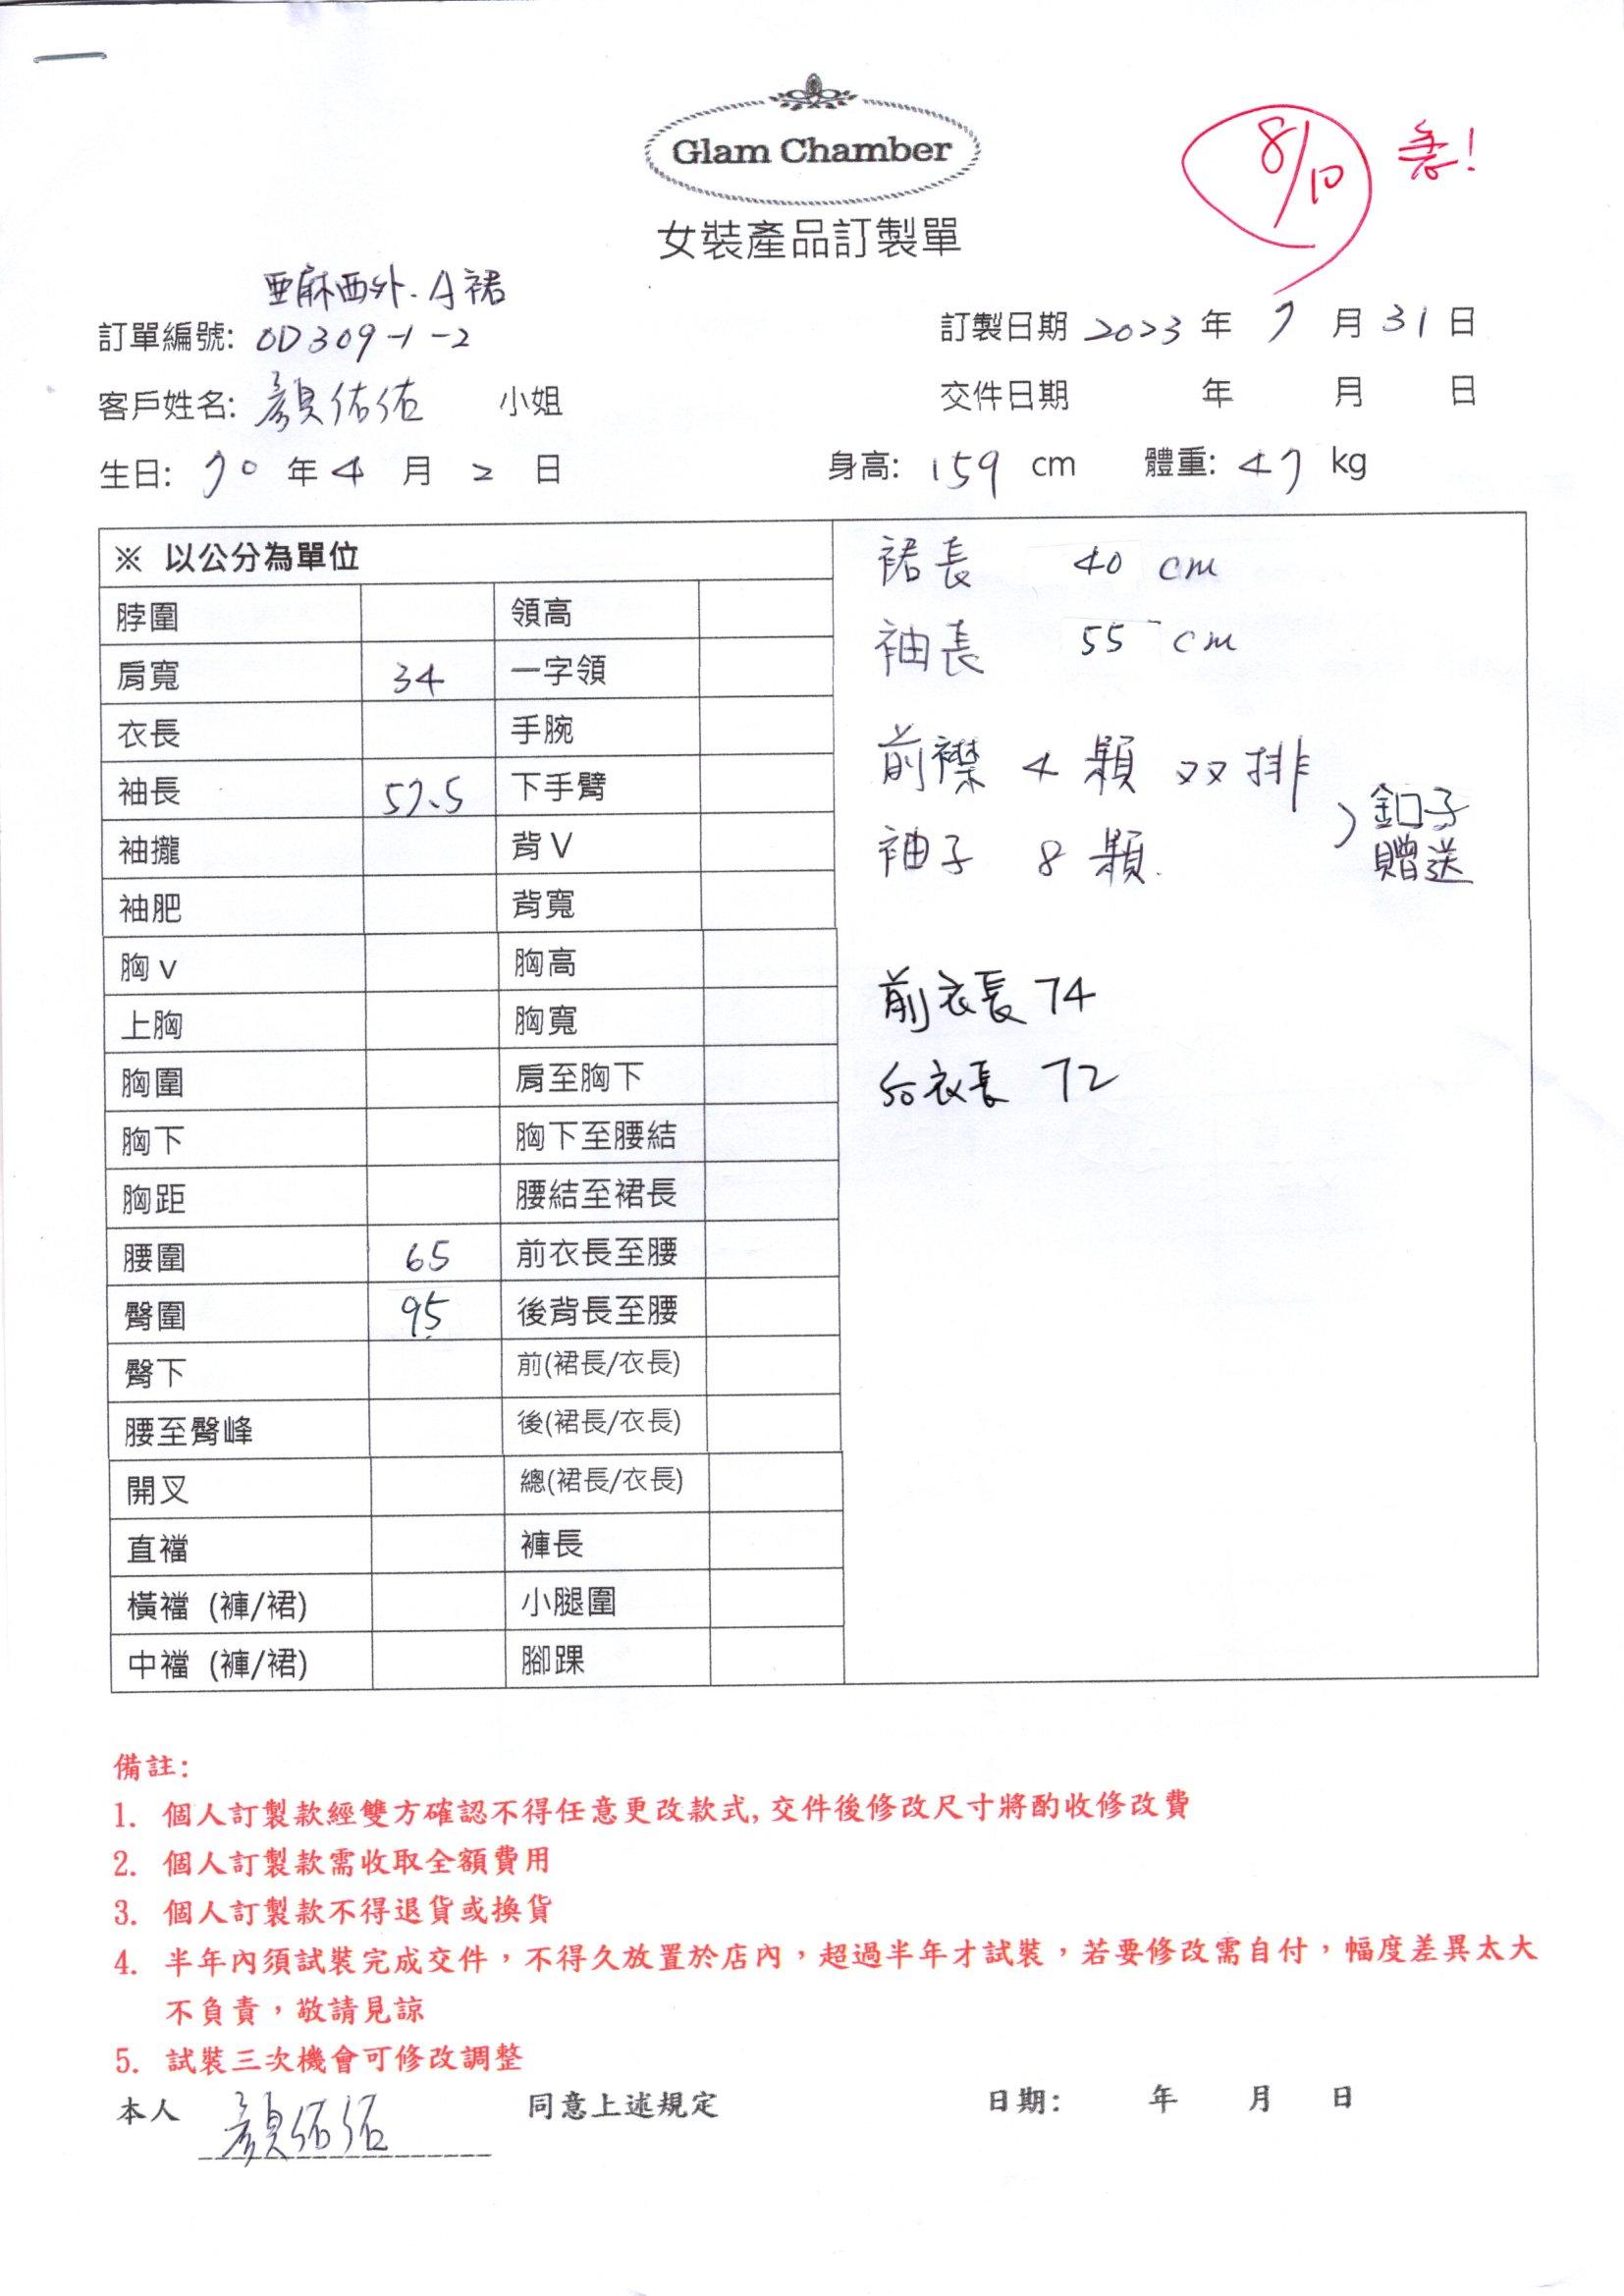 Glam Chamber
8/10 急!
女裝產品訂製單
亜麻西外.A裙
訂單編號: OD309-1-2
訂製日期 2023 年 7 月 31 日
客戶姓名: 顏佑佑 小姐
交件日期 年 月 日
生日: 70 年 4 月 2 日 身高: 159 cm 體重: 47 kg
※ 以公分為單位
脖圍 領高
肩寬 34 一字領
衣長 手腕
袖長 57.5 下手臂
袖攏 背V
袖肥 背寬
胸v 胸高
上胸 胸寬
胸圍 肩至胸下
胸下 胸下至腰結
胸距 腰結至裙長
腰圍 65 前衣長至腰
臀圍 95 後背長至腰
臀下 前(裙長/衣長)
腰至臀峰 後(裙長/衣長)
開叉 總(裙長/衣長)
直襠 褲長
橫襠 (褲/裙) 小腿圍
中襠 (褲/裙) 腳踝
裙長 40 cm
袖長 55 cm
前襟 4 顆 双排
袖子 8 顆.
釦子
贈送
前衣長 74
后衣長 72
備註:
1. 個人訂製款經雙方確認不得任意更改款式,交件後修改尺寸將酌收修改費
2. 個人訂製款需收取全額費用
3. 個人訂製款不得退貨或換貨
4. 半年內須試裝完成交件，不得久放置於店內，超過半年才試裝，若要修改需自付，幅度差異太大
不負責，敬請見諒
5. 試裝三次機會可修改調整
本人 顏佑佑 同意上述規定 日期: 年 月 日